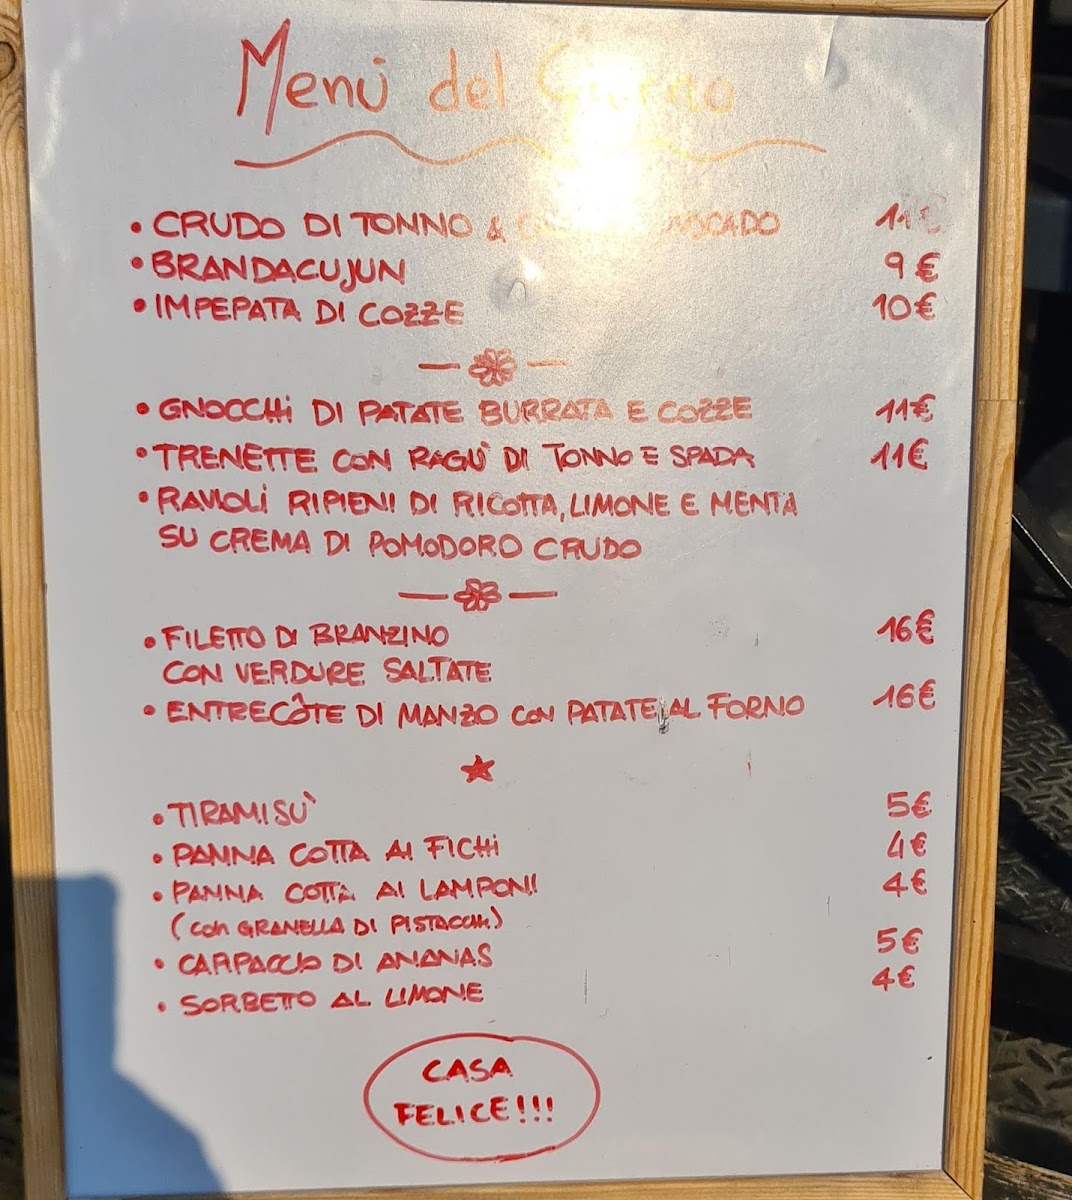 Menù del Giorno
• CRUDO DI TONNO & AVOCADO 11€
• BRANDACUJUN 9€
• IMPEPATA DI COZZE 10€
• GNOCCHi DI PATATE BURRATA E COZZE 11€
• TRENETTE CON RAGÙ DI TONNO E SPADA 11€
• RAVIOLI RIPIENI DI RICOTTA, LIMONE E MENTA
SU CREMA DI POMODORO CRUDO
• FILETTO DI BRANZINO 16€
CON VERDURE SALTATE
• ENTRECÔTE DI MANZO CON PATATE AL FORNO 16€
• TIRAMISÙ 5€
• PANNA COTTA AI FICHi 4€
• PANNA COTTA AI LAMPONI 4€
(con GRANELLA DI PISTACCHI)
• CARPACCIO DI ANANAS 5€
• SORBETTO AL LIMONE 4€
CASA
FELICE!!!